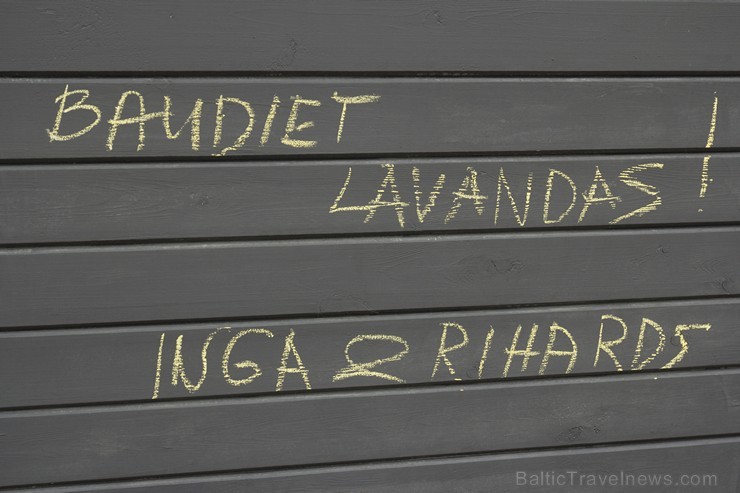 BAUDIET
LAVANDAS!
INGA & RIHARDS
BalticTravelnews.com